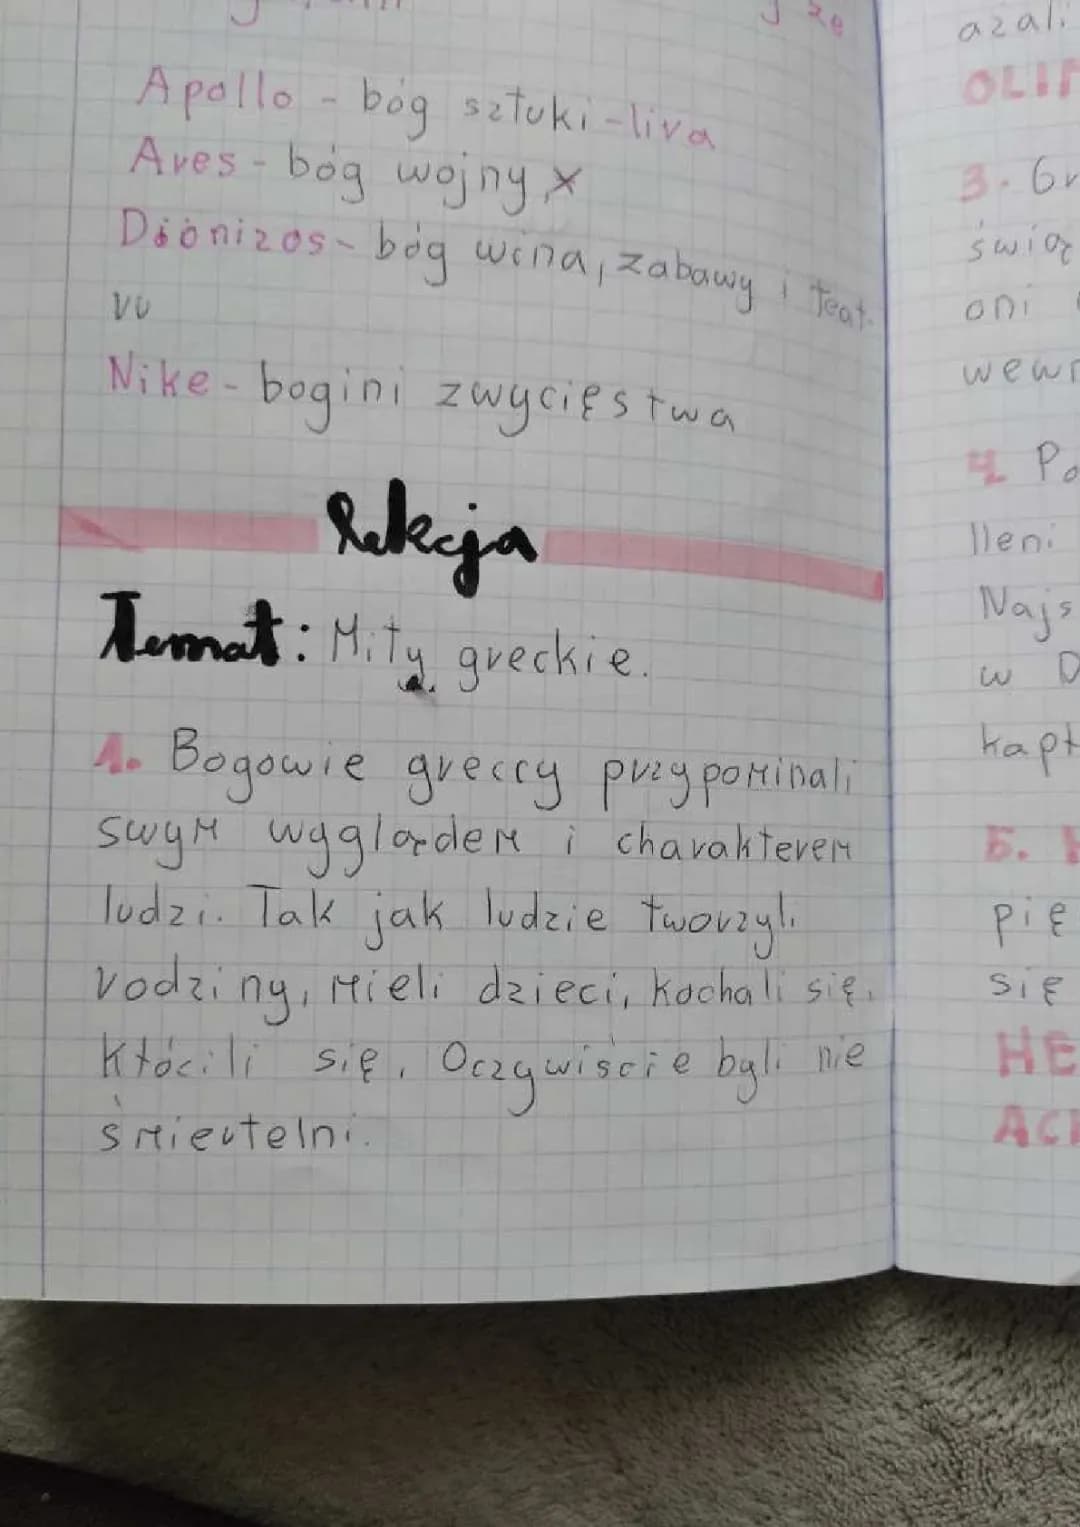 Apollo - bóg sztuki - lira
Ares - bóg wojny x
Dionizos - bóg wina, zabawy i teat-
ru
Nike - bogini zwycięstwa
Lekcja
Temat: Mity greckie.
1. Bogowie greccy przypominali
swym wyglądem i charakterem
ludzi. Tak jak ludzie tworzyli
rodziny, mieli dzieci, kochali się,
kłócili się. Oczywiście byli nie
śmiertelni.
azali
OLIM
3. Gr
świą
oni
wewn
4. Po
lleni
Najs
w D
kapł
5.
pię
się
HE
ACH